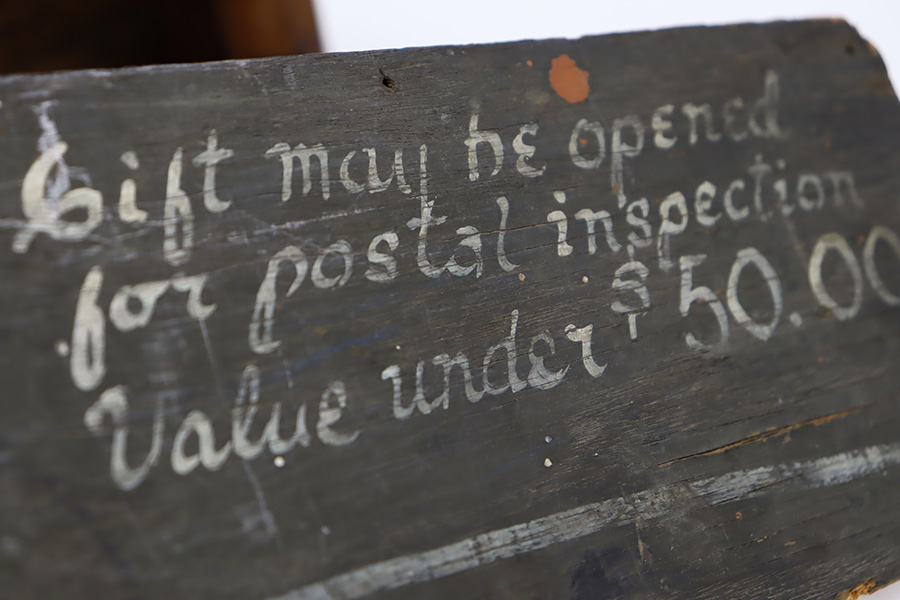 Gift may be opened
for postal inspection
Value under $50.00